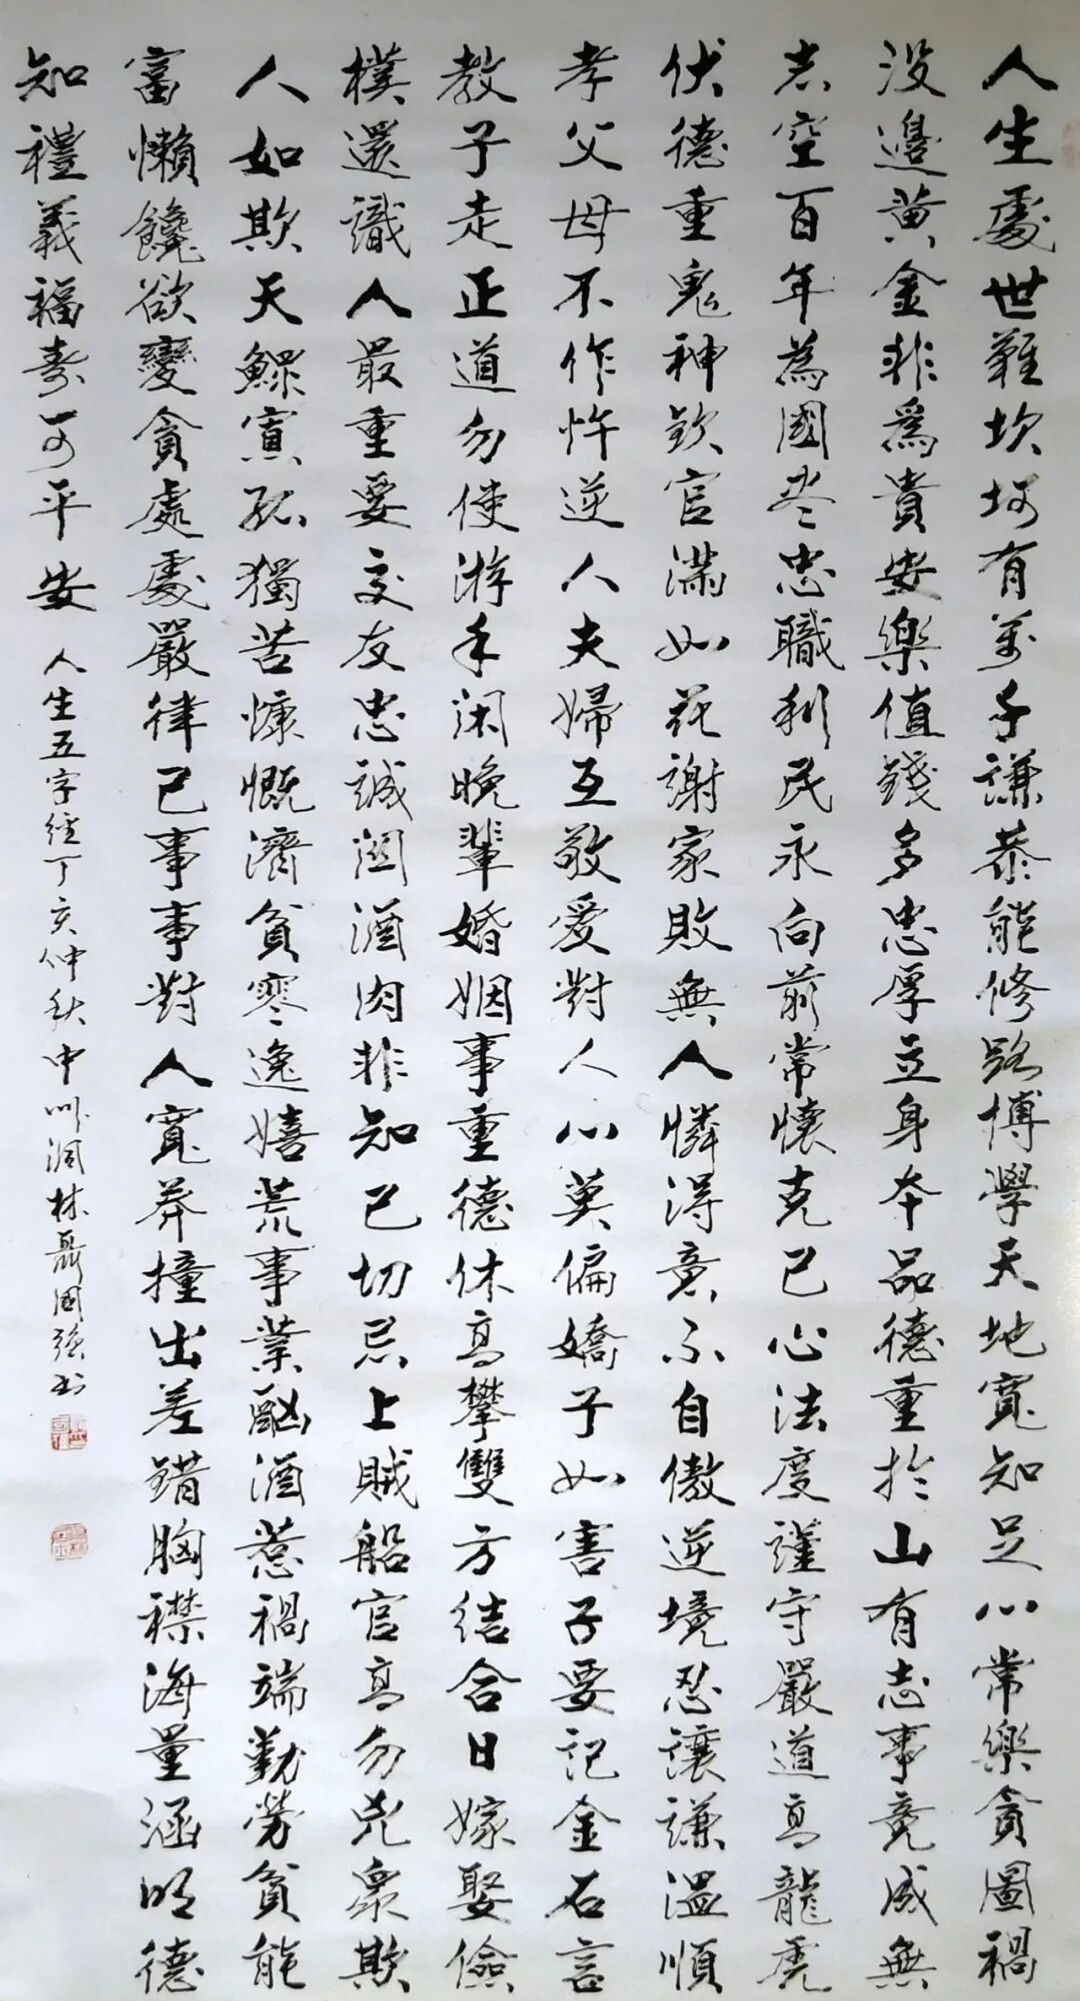 人生處世難坎坷有萬千謙恭能修路博學天地寬知足心常樂貪圖禍
没邊黄金非爲貴安樂值錢多忠厚立身本品德重於山有志事竟成無
志空百年為國尽忠職利民永向前常懷克己心法度謹守嚴道高龍虎
伏德重鬼神欽官滿如花謝家敗無人憐得意不自傲逆境忍讓謙溫順
孝父母不作忤逆人夫婦互敬愛對人心莫偏嬌子如害子要記金石言
教子走正道勿使游手闲晚輩婚姻事重德休高攀雙方結合日嫁娶儉
樸還識人最重要交友忠誠関酒肉非知己切忌上賊船官高勿兇衆欺
人如欺天鰥寡孤獨苦慷慨濟貧寒逸嬉荒事業酗酒惹禍端勤勞貧能
富懶饞欲變貪處處嚴律己事事對人寬莽撞出差錯胸襟海量涵明德
知禮義福壽可平安 人生五字經丁亥仲秋中州洞林聶國强书